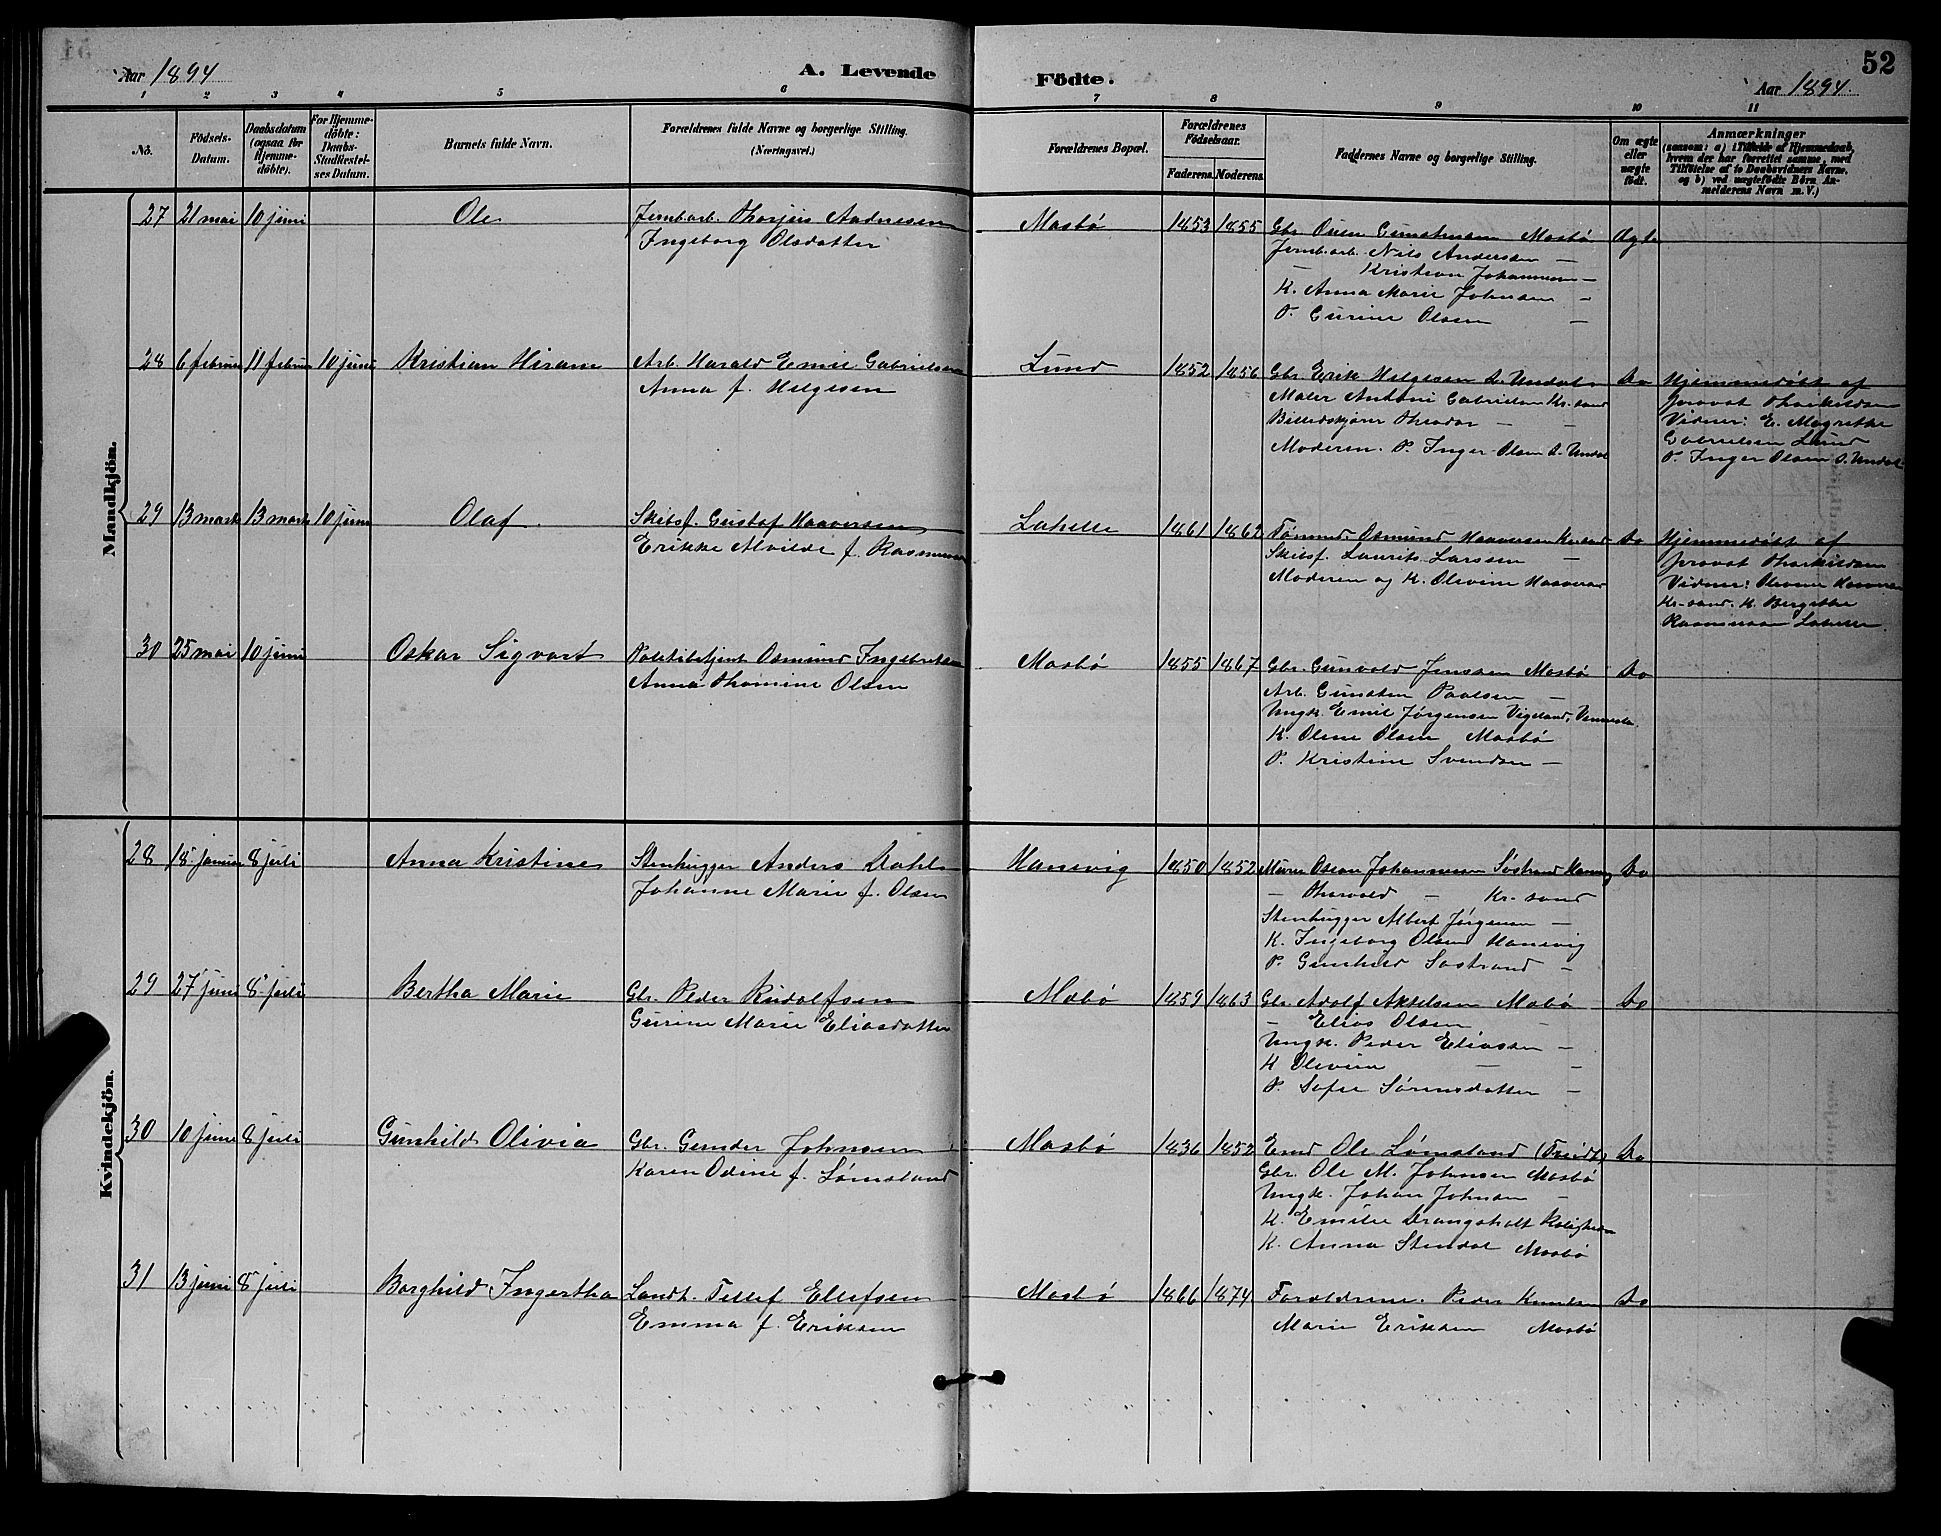 52
Aar 1894
A. Levende
Födte.
Aar 1894.
1 2 3 4 5 6 7 8 9 10 11
No.
Födsels-Datum.
Daabsdatum (ogsaa for Hjemme-döbte).
For Hjemme-döbte: Daabs-Stadfestel-ses Datum.
Barnets fulde Navn.
Forældrenes fulde Navne og borgerlige Stilling.
(Næringsvei.)
Forældrenes Bopæl.
Forældrenes Födselsaar.
Faderens. Moderens.
Faddernes Navne og borgerlige Stilling.
Om ægte eller uægte födt.
Anmærkninger
(saasom: a) i Tilfælde af Hjemmedaab, hvem der har forrettet samme, med Tilföielse af to Daabsvidners Navne, og b) ved uægtefödte Börn An-melderens Navn m. V.)
Mandkjön.
27 21 mai 10 juni Ole
Jernbarb. Thorjus Andreassen
Ingeborg Olsdatter
Mosbø 1853 1855
Gbr. Gunstensen Mosbø Ægte
Jernb.arb. Nils Andersen —
— Kristian Johannesen —
K. Anna Marie Johnsen —
P. Gurine Olsen —
28 6 februar 11 februar 10 juni Kristian Hiram
Arb. Harald Emil Gabrielsen
Anna f. Helgesen
Lund 1852 1856
Gbr. Erik Helgesen S. Undal Do
Maler Antoni Gabrielsen Kr.sand
Billedskjærer Theodor — —
Moderen. P. Inger Olsen S. Undal
Hjemmedøbt af
provst Thorkildsen
Vidner: E. Magrethe
Gabrielsen Lund
P. Inger Olsen S. Undal
29 13 marts 13 marts 10 juni Olaf
Skibsf. Gustaf Haaversen
Erikke Alvilde f. Rasmussen
Lahelle 1861 1862
Tømmerm. Osmund Haaversen Kr.sand Do
Skibsf. Laurits Larssen —
Moderen og K. Olivine Haaversen
Hjemmedøbt af
provst Thorkildsen
Vidner: Olivine Haaversen
Kr.sand. K. Bergithe
Rasmussen Lahelle.
30 25 mai 10 juni Oskar Sigvart
Politibetjent Osmund Ingebretsen
Anna Thomine Olsen
Mosbø 1855 1867
Gbr. Gunvald Jenssen Mosbø Do
Arb. Gunsten Paalsen —
Ungk. Emil Jørgensen Vigeland, Vennesla
K. Oline Olsen Mosbø
P. Kristine Svendsen —
Kvindekjön.
28 18 januar 8 juli Anna Kristine
Stenhugger Anders Dahl
Johanne Marie f. Olsen
Hanevig 1850 1852
Murer Oscar Johannesen Søstrand Hanevig Do
— Thorvald — Kr.sand
Stenhugger Albert Jørgensen —
K. Ingeborg Olsen Hanevig
P. Gunhild Søstrand —
29 27 juni 8 juli Bertha Marie
Gbr. Peder Rudolfsen
Gurine Marie Eliasdatter
Mobø 1859 1863
Gbr. Adolf Axelsen Mobø Do
— Elias Olsen —
Ungk. Peder Eliassen —
K Olivia — —
P. Sofie Sørensdatter —
30 10 juni 8 juli Gunhild Olivia
Gbr. Gunder Johnsen
Karen Odine f. Lømsland
Mosbø 1836 1852
Emd Ole Lømsland (Tveidt) Do
Gbr. Ole M. Johnsen Mosbø
Ungk. Johan Johnsen —
K. Emilie Drangsholt
K. Anna Stendal Mosbø
31 13 juni 8 juli Borghild Ingertha
Landh. Tellef Ellefsen
Emma f. Eriksen
Mosbø 1866 1874
Forældrene. Peder Knudsen Do
Marie Eriksen Mosbø